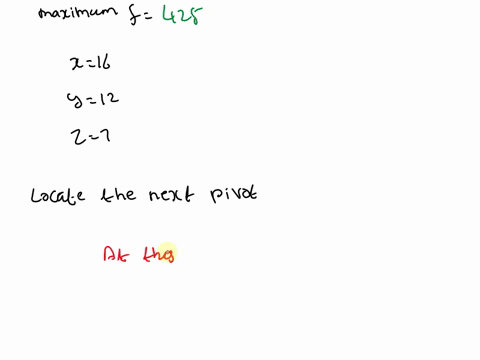 maximum f = 425
x=16
y=12
z=7
Locate the next pivot
At the